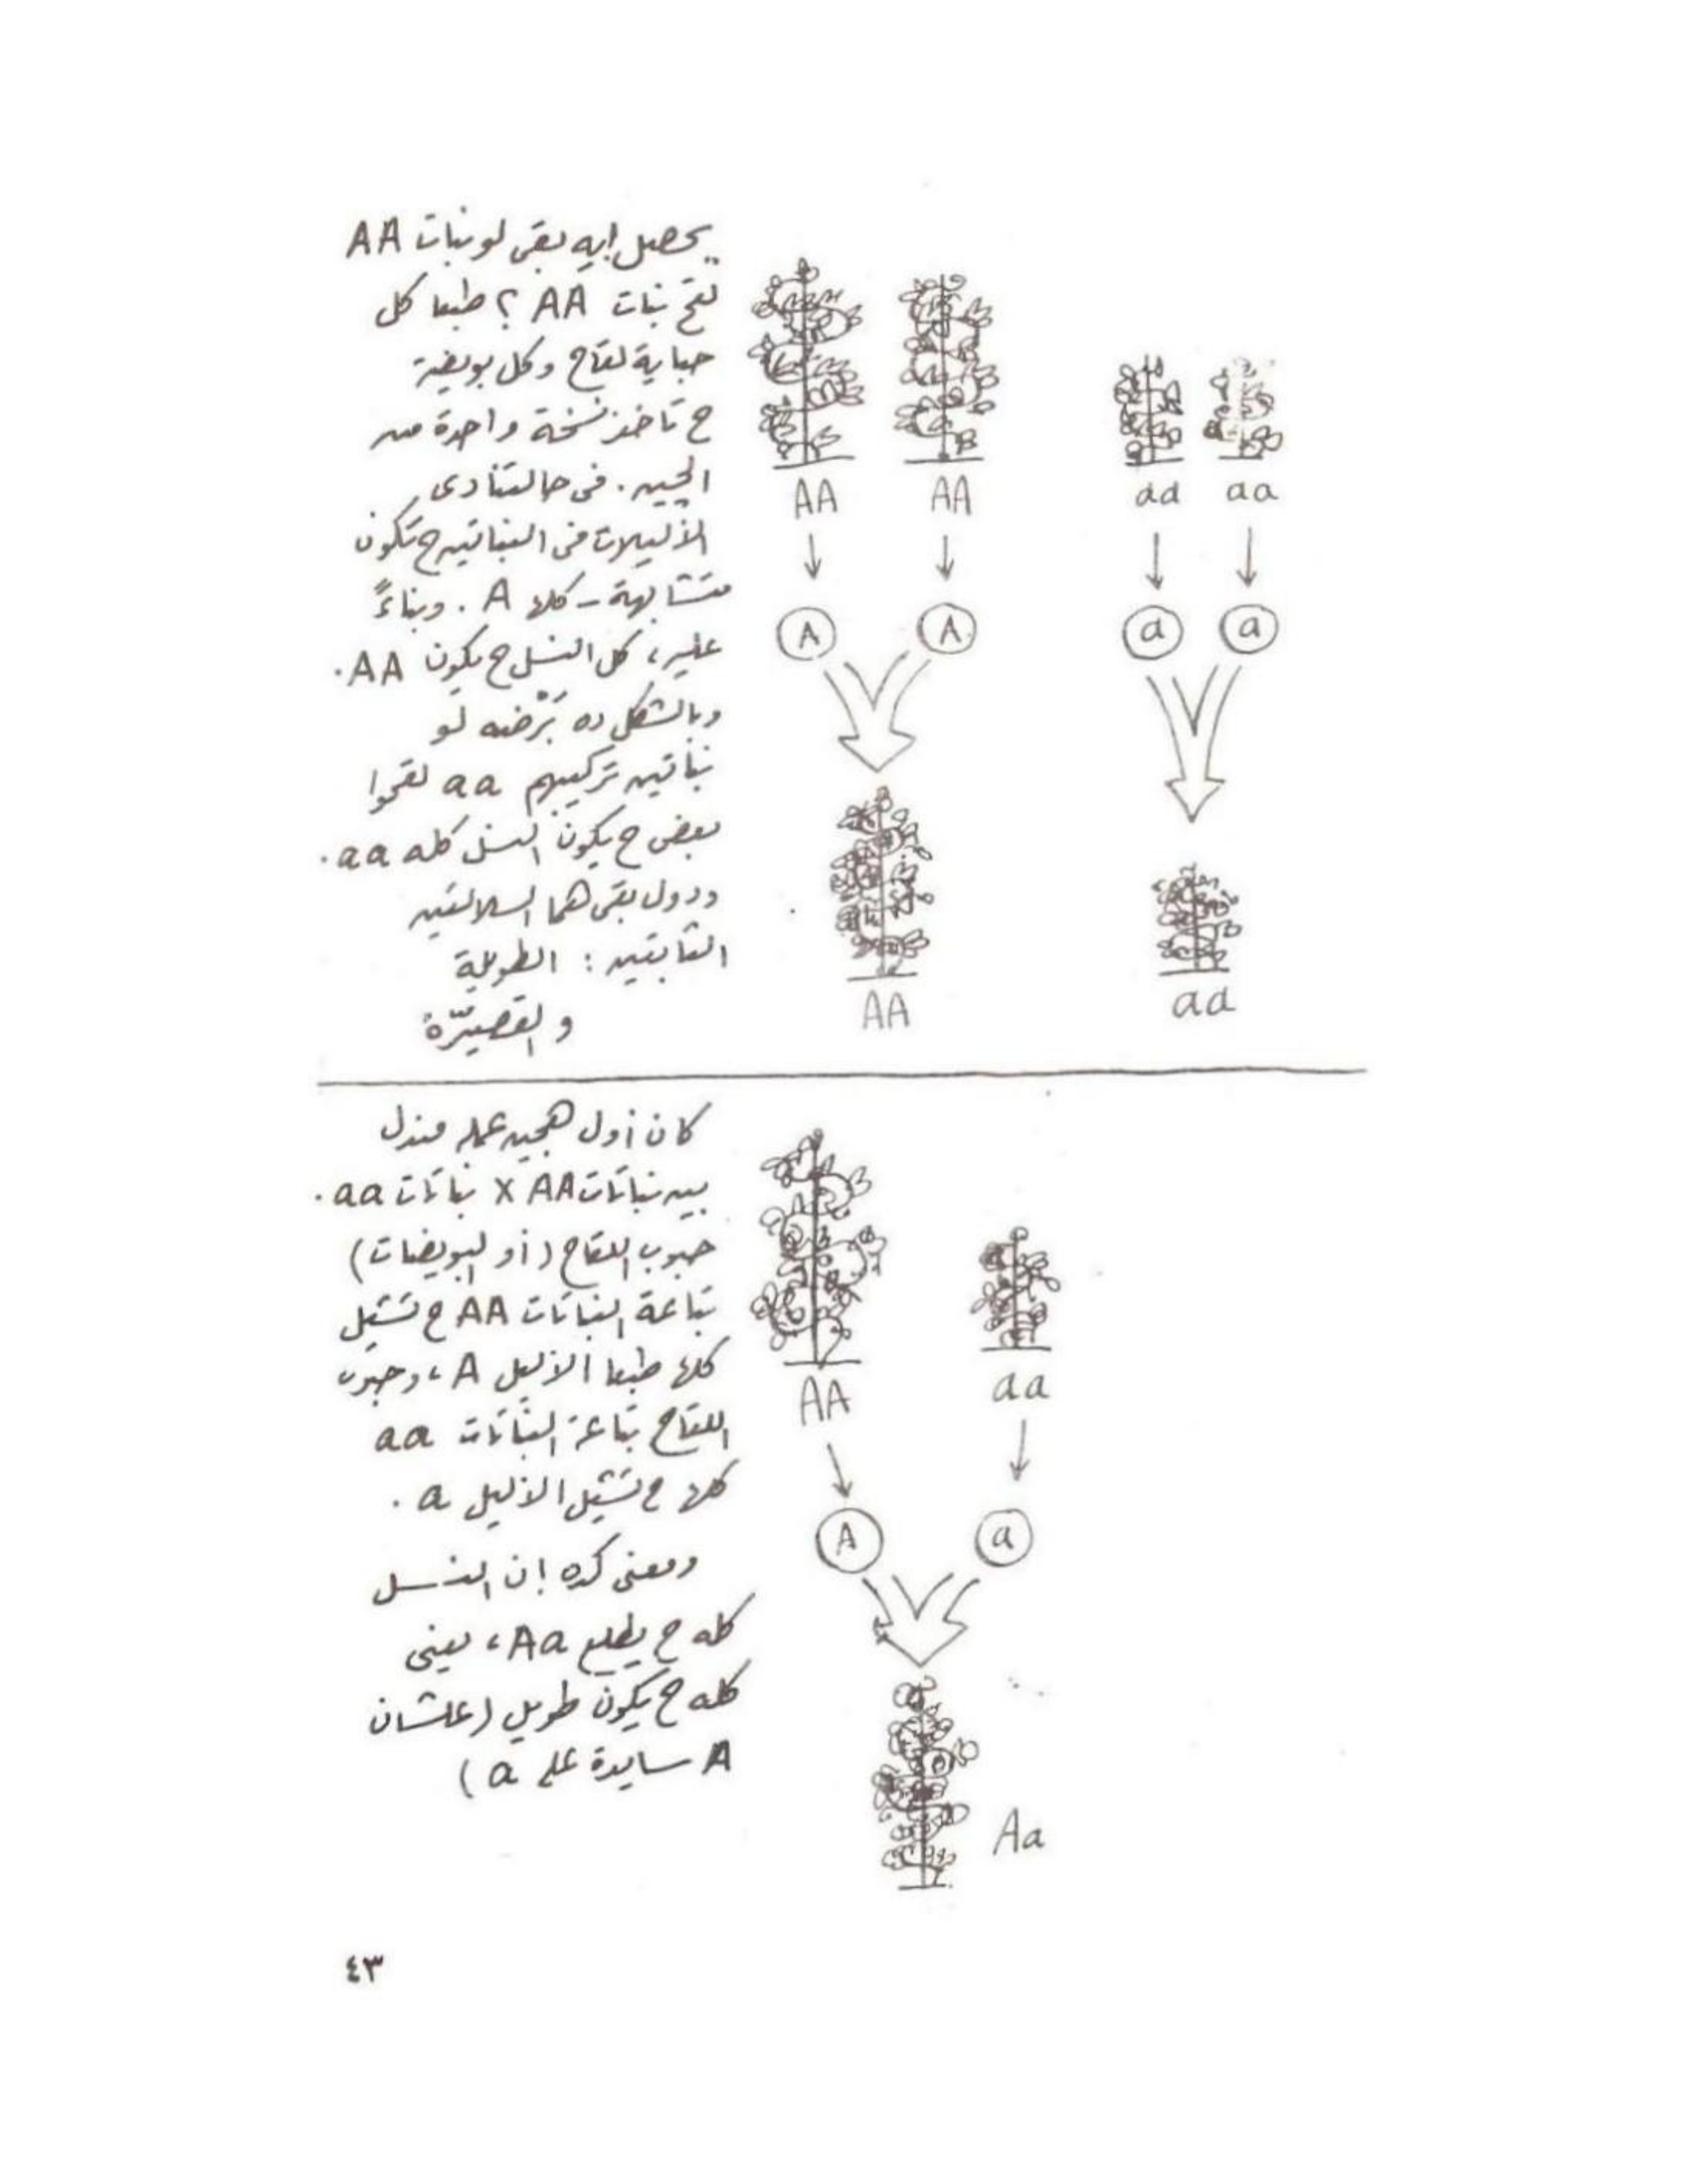 يحصل إيه بقى لو نبات AA
لقح نبات AA ؟ طبعا كل
حباية لقاح وكل بويضة
ح تاخذ نسخة واحدة من
الجين. في حالتنا دي
الأليلات في النباتين ح تكون
متشابهة - كلها A. وبناءً
عليه، كل النسل ح يكون AA.
وبالشكل ده بَرْضه لو
نباتين تركيبهم aa لقحوا
بعض ح يكون النسل كله aa.
ودول بقى هما السلالتين
الثابتين: الطويلة
والقصيّرة
AA
AA
aa
aa
A
A
a
a
AA
aa
كان أول هجين عمله مندل
بين نباتات AA X نباتات aa.
حبوب اللقاح (أو البويضات)
بتاعة النباتات AA ح تشيل
كلها طبعا الأليل A، وحبوب
اللقاح بتاعة النباتات aa
كلها ح تشيل الأليل a.
ومعنى كده إن النسل
كله ح يطلع Aa، يعني
كله ح يكون طويل (علشان
A سايدة على a)
AA
aa
A
a
Aa
٤٣